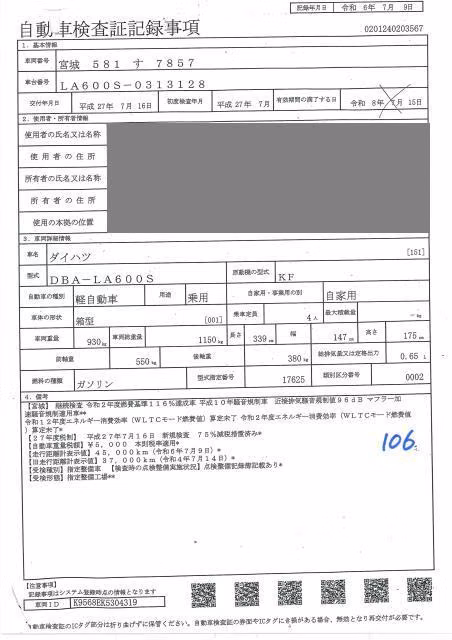 記録年月日 令和 6年 7月 9日
自動車検査証記録事項 0201240203567
1．基本情報
車両番号 宮城 581 す 7857
車台番号 LA600S－0313128
交付年月日 平成 27年 7月 16日 初度検査年月 平成 27年 7月 有効期間の満了する日 令和 8年 7月 15日
2．使用者・所有者情報
使用者の氏名又は名称
使用者の住所
所有者の氏名又は名称
所有者の住所
使用の本拠の位置
3．車両詳細情報
車名 ダイハツ [151]
型式 DBA－LA600S 原動機の型式 KF
自動車の種別 軽自動車 用途 乗用 自家用・事業用の別 自家用
車体の形状 箱型 [001] 乗車定員 4人 最大積載量 －kg
車両重量 930kg 車両総重量 1150kg 長さ 339cm 幅 147cm 高さ 175cm
前軸重 550kg 後軸重 380kg 総排気量又は定格出力 0.65 l
燃料の種類 ガソリン 型式指定番号 17625 類別区分番号 0002
4．備考
【宮城】 継続検査 令和2年度燃費基準116％達成車 平成10年騒音規制車 近接排気騒音規制値96dB マフラー加
速騒音規制適用車**
令和12年度エネルギー消費効率（WLTCモード燃費値）算定未了 令和2年度エネルギー消費効率（WLTCモード燃費値
）算定未了*
【27年度税制】 平成27年7月16日 新規検査 75％減税措置済み*
【自動車重量税額】￥5，000 本則税率適用*
【走行距離計表示値】45，000km（令和6年7月9日）*
【旧走行距離計表示値】37，000km（令和4年7月14日）*
【受検種別】指定整備車 【検査時の点検整備実施状況】点検整備記録簿記載あり*
【受検形態】指定整備工場**
106.
【注意事項】
記録事項はシステム登録時点の情報となります
車両ID K9568EK5304319
自動車検査証のICタグ部分は折り曲げずに保管ください。自動車検査証の券面やICタグに損傷がある場合、無効となり再交付が必要です。